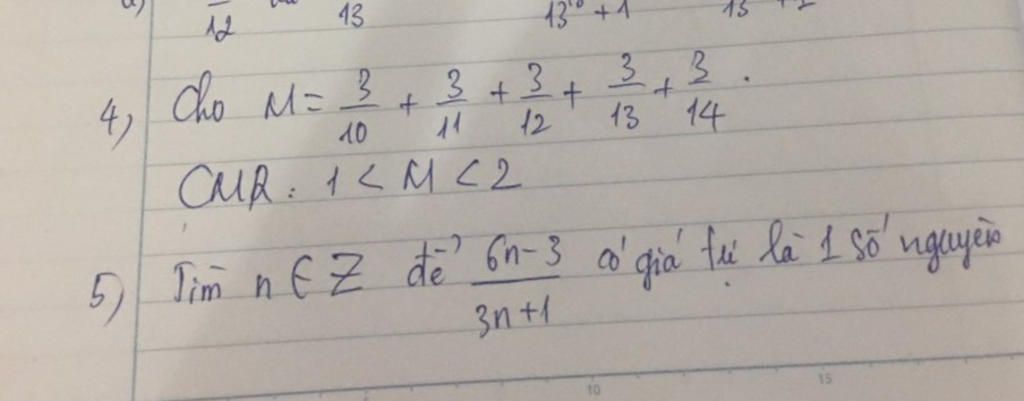 12 13 13¹⁰ + 1 13
4) Cho M = 3/10 + 3/11 + 3/12 + 3/13 + 3/14 .
CMR : 1 < M < 2
5) Tìm n ∈ Z để (6n-3)/(3n+1) có giá trị là 1 số nguyên
10 15